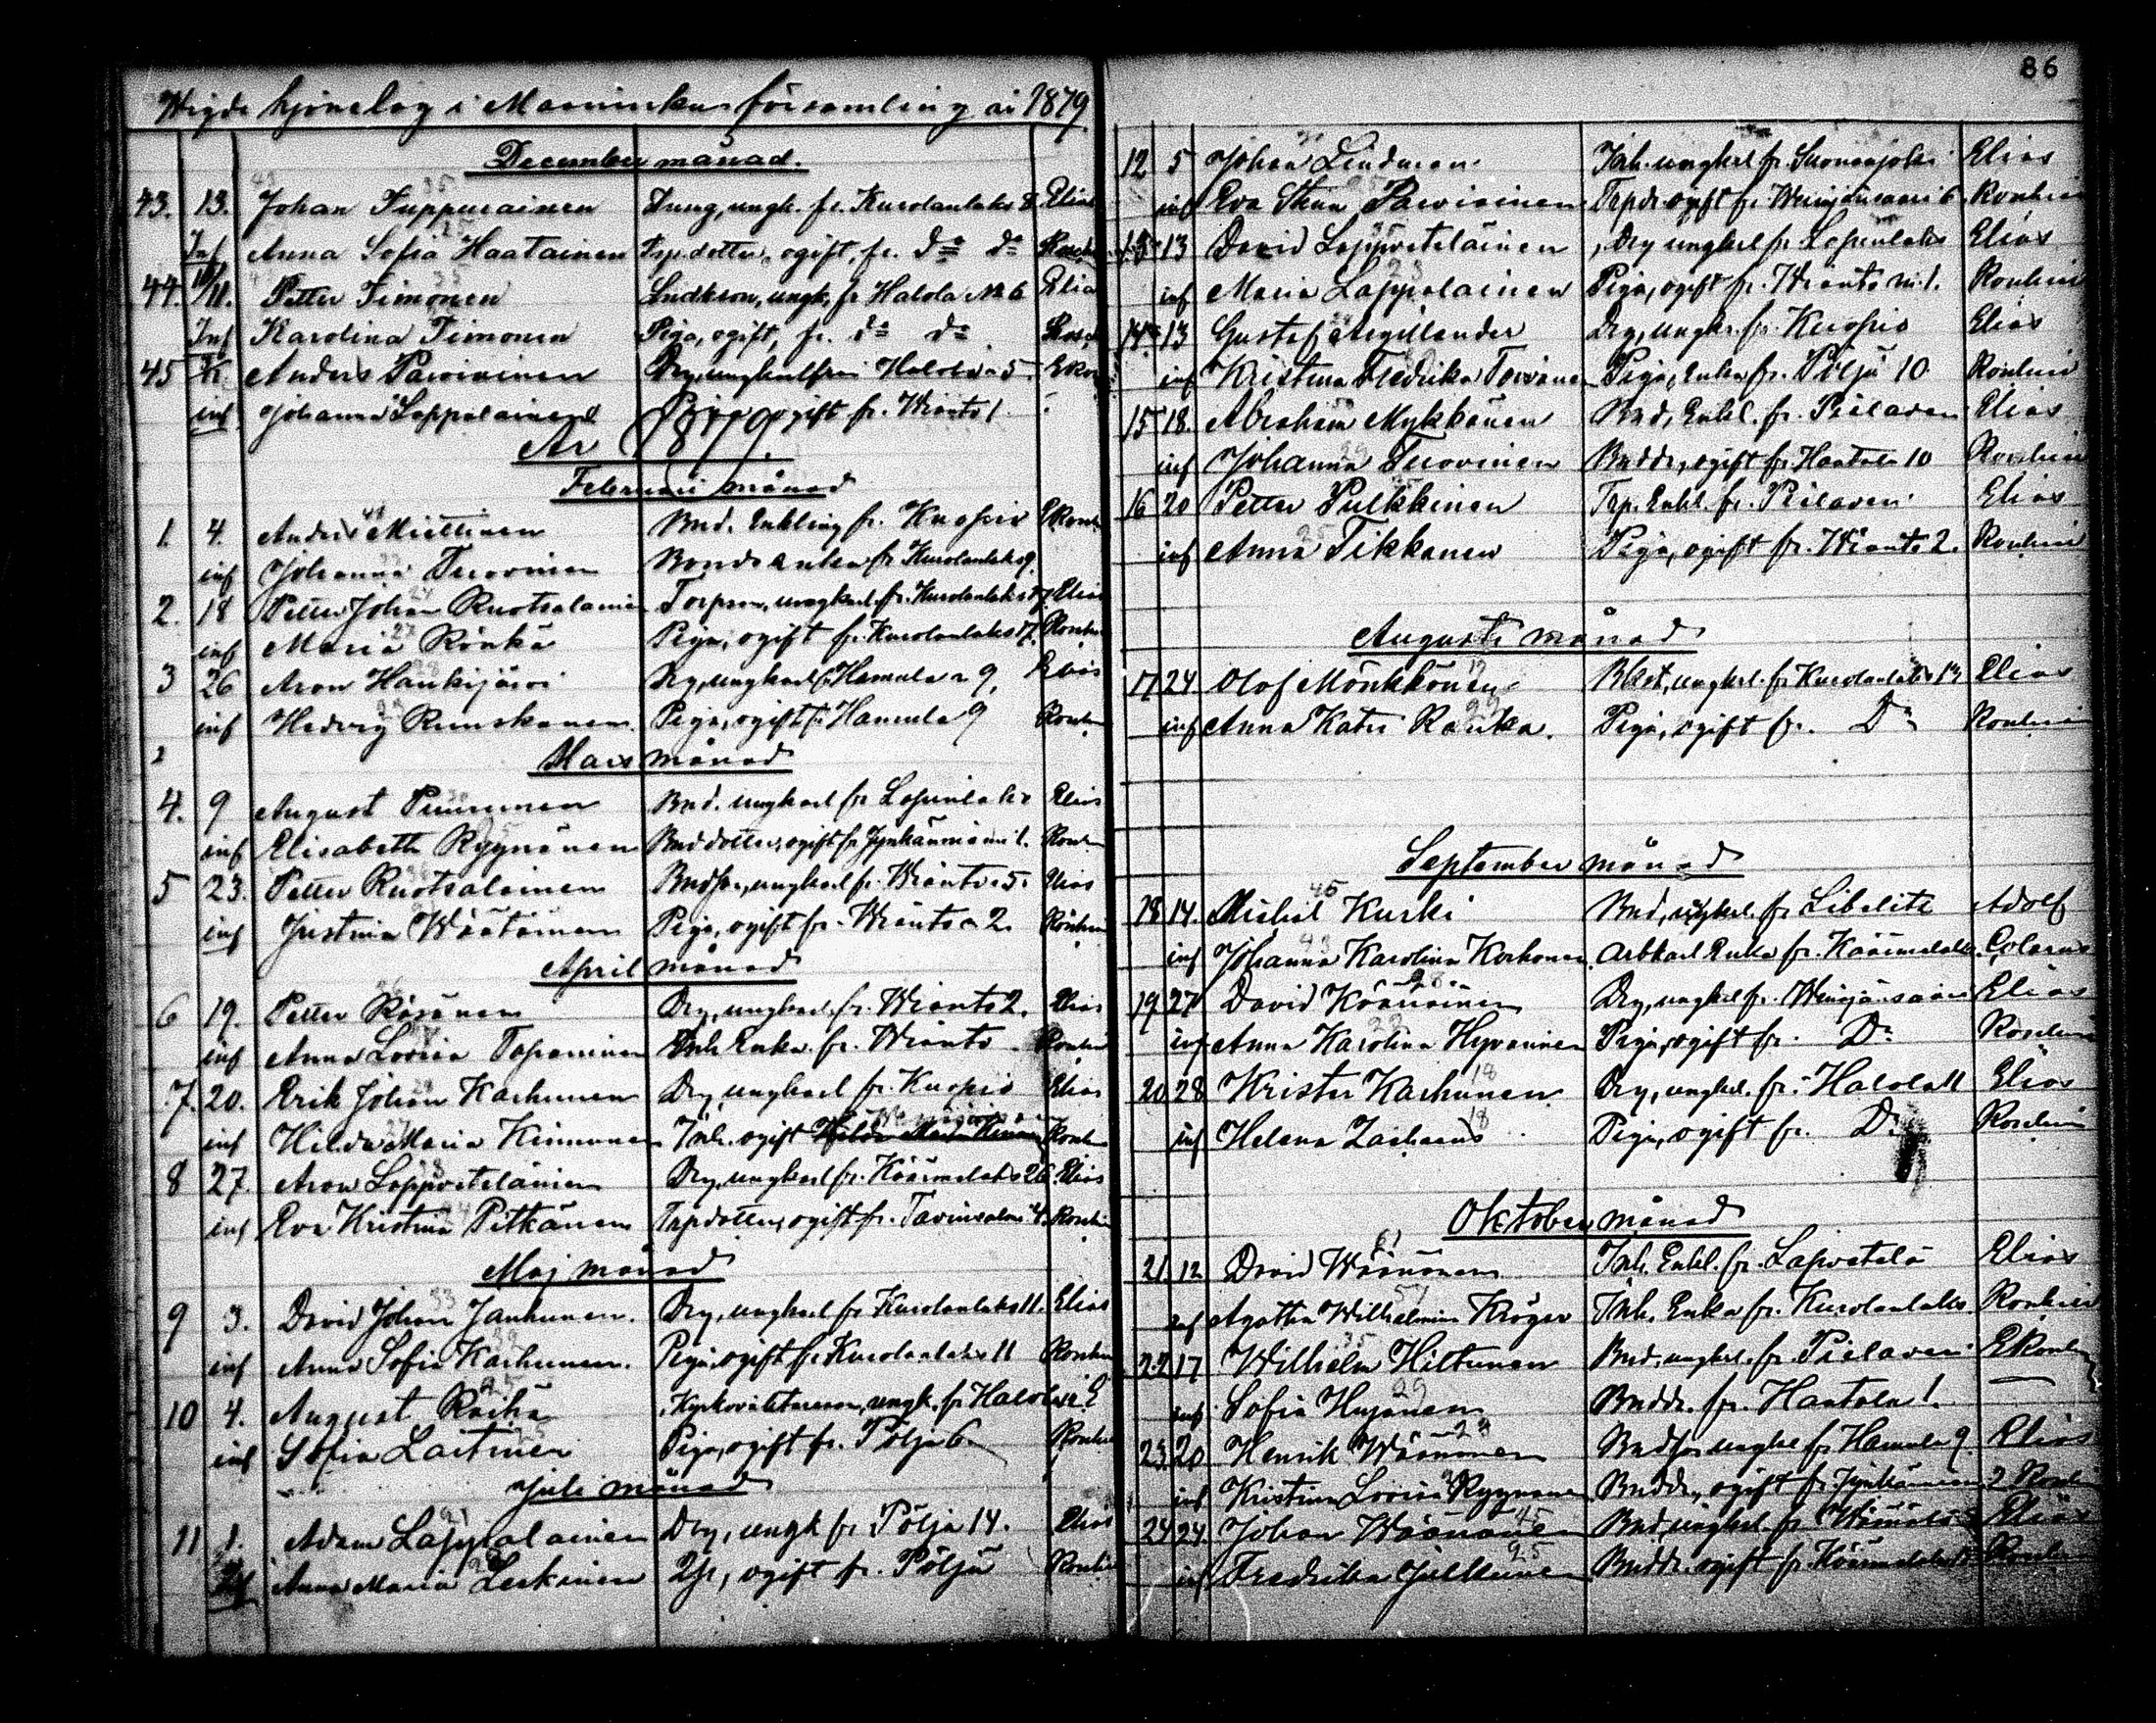 86
Wigde hjonelag i Maaninka församling år 1879.
December månad.
43. 13. Johan Tuppurainen Inng, ungk. fr. Kurolanlaks 8 Elias
Inf Anna Sofia Haatainen Trp.dotter, ogift, fr. do do
44. Petter Timonen ungk. fr Halola No 6 Elia
Inf Karolina Timonen Piga, ogift, fr. do do
45 Anders Parviainen Drg, ungkarl från Halola 5.
inf Johanna Lappalainen Piga ogift fr. Wianto 1.
År 1879.
Februari månad
1. 4. Anders Miettinen 41 Bnd. Enkling fr. Kuopio
inf Johanna Tuovinen Bonde enka fr Kurolanlaks 9.
2. 18 Petter Johan Ruotsalainen 24 Torpson, ungkarl fr. Kurolanlaks 17 Elias
inf Maria Rönkä 27 Piga, ogift fr. Kurolanlaks 17.
3 26 Aron Haukijärvi Drg, ungkarl fr Hamula 9, Elias
inf Hedvig Ruuskanen Piga, ogift fr Hamula 9
Mars månad
4. 9 August Puurunen Bnd. ungkarl fr Lapinlaks Elias
inf Elisabeth Ryynänen Bnddotter, ogift fr Jynkänniemi 1.
5 23. Petter Ruotsalainen Bndson, ungkarl fr. Wianto 5. Elias
inf Justina Wäätäinen Piga, ogift fr. Wianto 2.
April månad
6 19. Petter Räsänen Drg, ungkarl fr. Wianto 2. Elias
inf Anna Lovisa Tapaninen Inh. Enka fr. Wianto
7. 20. Erik Johan Karhunen Drg, ungkarl fr. Kuopio Elias
inf Hilda Maria Kinnunen 27 Inh. ogift
8 27. Aron Lappveteläinen Drg, ungkarl fr. Käärmelaks 26. Elias
inf Eva Kristina Pitkänen Trpdotter, ogift fr. Tavinsalmi 4.
Maj månad
9 3. David Johan Janhunen. 33 Drg, ungkarl fr Kurolanlaks 11. Elias
inf Anna Sofia Karhunen. Piga, ogift fr Kurolanlaks 11
10 4. August Räihä 25 Kyrkovaktareson, ungk. fr Halola
inf Sofia Laitinen 25 Piga, ogift fr. Pöljä 6
Juli månad
11 1. Adam Lappalainen 21 Drg, ungk fr Pöljä 14. Elias
Inf Anna Maria Leskinen Pg, ogift fr. Pöljä
12 5 Johan Lindman Inh. ungkrl fr. Suonenjoki Elias
inf Eva Stina Parviainen Trpdr ogift fr Wenejänsaari 6
13 13 David Lappveteläinen Drg ungkrl fr Lapinlaks Elias
inf Maria Lappalainen 23 Piga, ogift fr. Wianto No 1.
14 13 Gustaf Argillander Drg, ungkr. fr. Kuopio Elias
inf Kristina Fredrika Toivanen Piga, Enka fr. Pöljä 10
15 18. Abraham Mykkänen Bnd, Enkl. fr. Pielaves Elias
inf Johanna Tuovinen 29 Bnddr, ogift fr. Haatala 10
16 20 Petter Pulkkinen Trp. Enkl. fr. Pielaves Elias
inf Anna Tikkanen 25 Piga, ogift fr. Wianto 2.
Augusti månad
17 24 Olof Mönkkönen ungkrl. fr Kurolanlaks Elias
inf Anna Katri Rönkä. 22 Piga, ogift fr. Do
September månad
18 14. Mickel Kurki 45 Bnd, ungkrl. fr Libelits Adolf
inf Johanna Karolina Korhonen 43 Arbkarl Enka fr. Käärmelaks
19 27 David Väänäinen 28 Drg, ungkrl fr. Wenejänsaari Elias
inf Anna Karolina Hyvärinen 22 Piga, ogift fr. Do
20 28 Krister Karhunen 18 Drg, ungkrl. fr. Halola 11 Elias
inf Helena Zachaeus 18 Piga, ogift fr. Do
Oktober månad
21. 12 David Wäänänen 61 Inh. Enkl. fr. Lapvetelä Elias
inf Agatha Wilhelmina Kröger 57 Inh. Enka fr. Kurolanlaks
22 17 Wilhelm Hiltunen 35 Bnd. ungkrl. fr. Pielaves
inf Sofia Hujanen 29 Bnddr. fr. Haatala 1.
23. 20 Henrik Wäänänen 23 Bndson ungkrl fr Hamula 9 Elias
inf Kristina Lovisa Ryynänen Bnddr., ogift fr Jynkänniemi 2
24 24. Johan Wäänänen 45 Bnd, ungkrl. fr Elias
inf Fredrika Jalkanen 25 Bnddr. ogift fr Käärmelaks